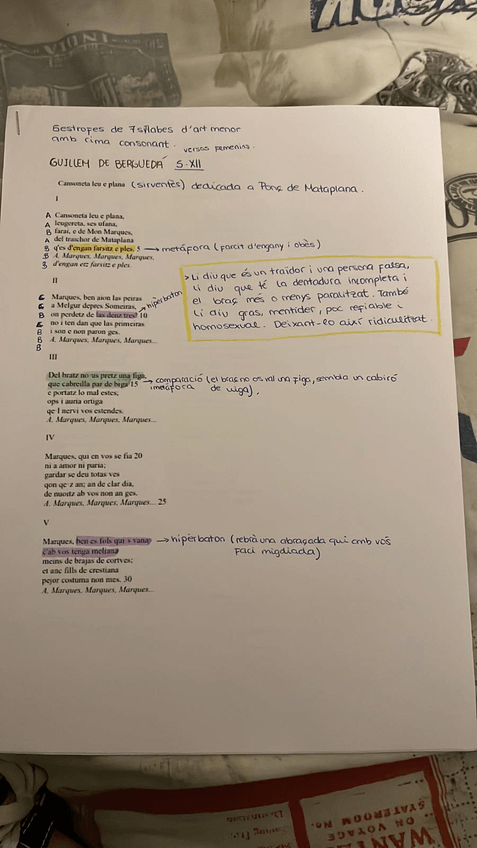 6estropes de 7síl·labes d'art menor
amb rima consonant. versos femenins.
GUILLEM DE BERGUEDÀ S.XII
Cansoneta leu e plana (sirventès) dedicada a Ponç de Mataplana.
I
A Cansoneta leu e plana,
A leugereta, ses ufana,
B farai, e de Mon Marques,
A del traichor de Mataplana
B q'es d'engan farsitz e ples. 5 → metáfora (farcit d'engany i obès)
B A. Marques, Marques, Marques,
B d'engan etz farsitz e ples.
> Li diu que és un traïdor i una persona falsa,
li diu que té la dentadura incompleta i
el braç més o menys paralitzat. També
li diu gras, mentider, poc refiable i
homosexual. Deixant-lo així ridiculitzat.
II
C Marques, ben aion las peiras
C a Melgur depres Someiras,
B on perdetz de las denz tres! 10 → hipèrbaton
C no i ten dan que las primeiras
B i son e non paron ges.
B A. Marques, Marques, Marques...
B
III
Del bratz no us pretz una figa,
que cabrella par de biga 15 → comparació (el braç no os val una figa, sembla un cabiró
i metáfora de viga).
e portatz lo mal estes;
ops i auria ortiga
qe l nervi vos estendes.
A. Marques, Marques, Marques...
IV
Marques, qui en vos se fia 20
ni a amor ni paria;
gardar se deu totas ves
qon qe·z an; an de clar dia,
de nuoitz ab vos non an ges.
A. Marques, Marques, Marques... 25
V
Marques, ben es fols qui s vana → hipèrbaton (rebrà una abraçada qui amb vós
c'ab vos tenga meliana faci migdiada)
meins de brajas de cortves;
et anc fills de crestiana
pejor costuma non mes. 30
A. Marques, Marques, Marques...